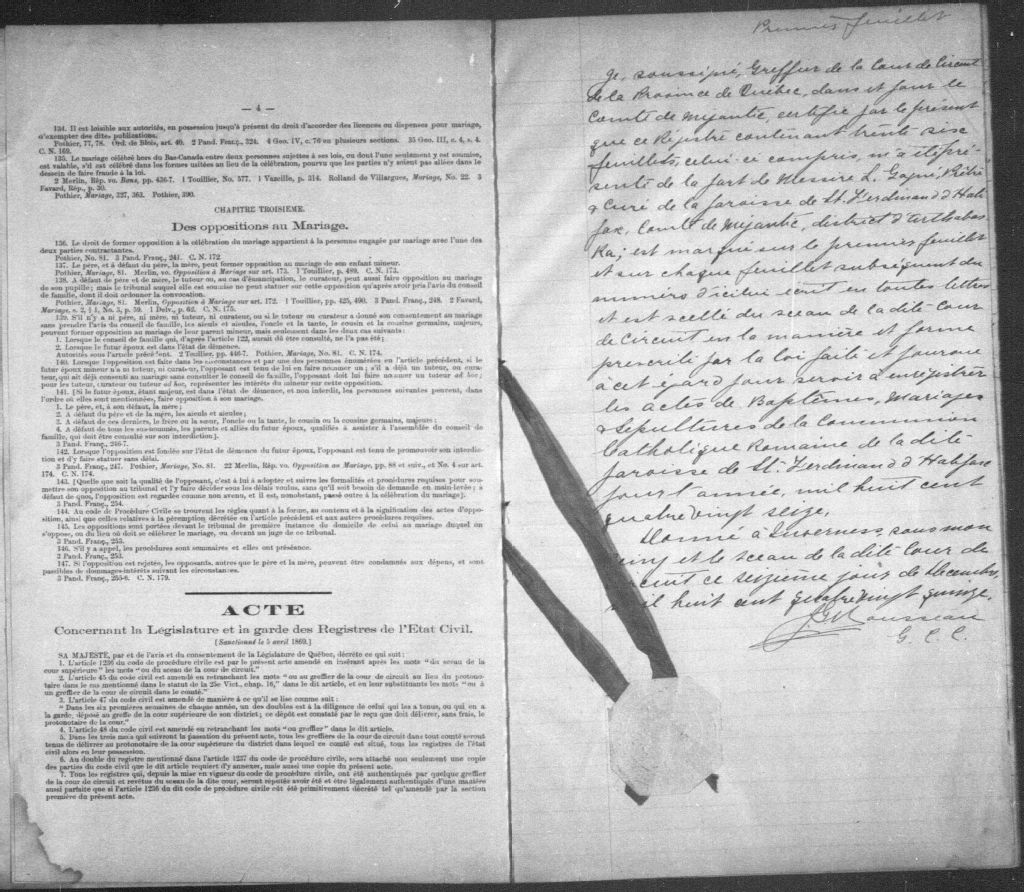 — 4 —
134. Il est loisible aux autorités, en possession jusqu'à présent du droit d'accorder des licences ou dispenses pour mariage,
d'exempter des dites publications.
Pothier, 77, 78. Ord. de Blois, art. 40. 2 Pand. Franç., 324. 4 Geo. IV, c. 76 en plusieurs sections. 35 Geo. III, c. 4, s. 4.
C. N. 169.
135. Le mariage célébré hors du Bas-Canada entre deux personnes sujettes à ses lois, ou dont l'une seulement y est soumise,
est valable, s'il est célébré dans les formes usitées au lieu de la célébration, pourvu que les parties n'y aient pas allées dans le
dessein de faire fraude à la loi.
2 Merlin, Rép. vo. Bans, pp. 436-7. 1 Touillier, No. 577. 1 Vazeille, p. 314. Rolland de Villargues, Mariage, No. 22. 3
Favard, Rép., p. 30.
Pothier, Mariage, 327, 363. Pothier, 390.
CHAPITRE TROISIEME.
Des oppositions au Mariage.
136. Le droit de former opposition à la célébration du mariage appartient à la personne engagée par mariage avec l'une des
deux parties contractantes.
Pothier, No. 81. 3 Pand. Franç., 241. C. N. 172.
137. Le père, et à défaut du père, la mère, peut former opposition au mariage de son enfant mineur.
Pothier, Mariage, 81. Merlin, vo. Opposition à Mariage sur art. 173. 1 Touillier, p. 489. C. N. 173.
138. A défaut de père et de mère, le tuteur ou, au cas d'émancipation, le curateur, peut aussi, faire opposition au mariage
de son pupille; mais le tribunal auquel elle est soumise ne peut statuer sur cette opposition qu'après avoir pris l'avis du conseil
de famille, dont il doit ordonner la convocation.
Pothier, Mariage, 81. Merlin, Opposition à Mariage sur art. 172. 1 Touillier, pp. 425, 490. 3 Pand. Franç., 248. 2 Favard,
Mariage, s. 2, § 1, No. 3, p. 59. 1 Delv., p. 62. C. N. 175.
139. S'il n'y a ni père, ni mère, ni tuteur, ni curateur, ou si le tuteur ou curateur a donné son consentement au mariage
sans prendre l'avis du conseil de famille, les aieuls et aieules, l'oncle et la tante, le cousin et la cousine germains, majeurs,
peuvent former opposition au mariage de leur parent mineur, mais seulement dans les deux cas suivants :
1. Lorsque le conseil de famille qui, d'après l'article 122, aurait dû être consulté, ne l'a pas été;
2. Lorsque le futur époux est dans l'état de démence.
Autorités sous l'article précédent. 2 Touillier, pp. 446-7. Pothier, Mariage, No. 81. C. N. 174.
140. Lorsque l'opposition est faite dans les circonstances et par une des personnes énumérées en l'article précédent, si le
futur époux mineur n'a ni tuteur, ni curateur, l'opposant est tenu de lui en faire nommer un; s'il a déjà un tuteur, ou cura-
teur, qui ait déjà consenti au mariage sans consulter le conseil de famille, l'opposant doit lui faire nommer un tuteur ad hoc;
pour les tuteur, curateur ou tuteur ad hoc, représenter les intérêts du mineur sur cette opposition.
141. [Si le futur époux, étant majeur, est dans l'état de démence, et non interdit, les personnes suivantes peuvent, dans
l'ordre où elles sont mentionnées, faire opposition à son mariage.
1. Le père, et, à son défaut, la mère;
2. A défaut du père et de la mère, les aieuls et aieules;
3. A défaut de ces derniers, le frère ou la sœur, l'oncle ou la tante, le cousin ou la cousine germains, majeurs;
4. A défaut de tous les sus-nommés, les parents et alliés du futur époux, qualifiés à assister à l'assemblée du conseil de
famille, qui doit être consulté sur son interdiction].
3 Pand. Franç., 246-7.
142. Lorsque l'opposition est fondée sur l'état de démence du futur époux, l'opposant est tenu de promouvoir son interdic-
tion et d'y faire statuer sans délai.
3 Pand. Franç., 247. Pothier, Mariage, No. 81. 22 Merlin, Rép. vo. Opposition au Mariage, pp. 88 et suiv., et No. 4 sur art.
174. C. N. 174.
143. [Quelle que soit la qualité de l'opposant, c'est à lui à adopter et suivre les formalités et procédures requises pour sou-
mettre son opposition au tribunal et l'y faire décider sous les délais voulus, sans qu'il soit besoin de demande en main-levée; à
défaut de quoi, l'opposition est regardée comme non avenu, et il est, nonobstant, passé outre à la célébration du mariage].
3 Pand. Franç., 254.
144. Au code de Procédure Civile se trouvent les règles quant à la forme, au contenu et à la signification des actes d'oppo-
sition, ainsi que celles relatives à la péremption décrétée en l'article précédent et aux autres procédures requises.
145. Les oppositions sont portées devant le tribunal de première instance du domicile de celui au mariage duquel on
s'oppose, ou du lieu où doit se célébrer le mariage, ou devant un juge de ce tribunal.
3 Pand. Franç., 253.
146. S'il y a appel, les procédures sont sommaires et elles ont préséance.
2 Pand. Franç., 253.
147. Si l'opposition est rejetée, les opposants, autres que le père et la mère, peuvent être condamnés aux dépens, et sont
passibles de dommages-intérêts suivant les circonstances.
3 Pand. Franç., 255-6. C. N. 179.
ACTE
Concernant la Législature et la garde des Registres de l'Etat Civil.
[Sanctionné le 5 avril 1869.]
SA MAJESTÉ, par et de l'avis et du consentement de la Législature de Québec, décrète ce qui suit :
1. L'article 1236 du code de procédure civile est par le présent acte amendé en insérant après les mots "du sceau de la
cour supérieure" les mots "ou du sceau de la cour de circuit."
2. L'article 45 du code civil est amendé en retranchant les mots "ou au greffier de la cour de circuit au lieu du protono-
taire dans le cas mentionné dans le statut de la 25e Vict., chap. 16," dans le dit article, et en leur substituant les mots "ou à
un greffier de la cour de circuit dans le comté."
3. L'article 47 du code civil est amendé de manière à ce qu'il se lise comme suit :
"Dans les six premières semaines de chaque année, un des doubles est à la diligence de celui qui les a tenus, ou qui en a
la garde, déposé au greffe de la cour supérieure de son district; ce dépôt est constaté par le reçu que doit délivrer, sans frais, le
protonotaire de la cour."
4. L'article 48 du code civil est amendé en retranchant les mots "ou greffier" dans le dit article.
5. Dans les trois mois qui suivront la passation du présent acte, tous les greffiers de la cour de circuit dans tout comté seront
tenus de délivrer au protonotaire de la cour supérieure du district dans lequel ce comté est situé, tous les registres de l'état
civil alors en leur possession.
6. Au double du registre mentionné dans l'article 1237 du code de procédure civile, sera attaché non seulement une copie
des parties du code civil que le dit article requiert d'y annexer, mais aussi une copie du présent acte.
7. Tous les registres qui, depuis la mise en vigueur du code de procédure civile, ont été authentiqués par quelque greffier
de la cour de circuit et revêtus du sceau de la dite cour, seront réputés avoir été et être légalement authentiqués d'une manière
aussi parfaite que si l'article 1236 du dit code de procédure civile eût été primitivement décrété tel qu'amendé par la section
première du présent acte.
Premier feuillet
Je, soussigné, Greffier de la Cour de Circuit
de la Province de Québec, dans et pour le
Comté de Mégantic, certifie par le présent
que ce Registre contenant trente six
feuillets, celui-ci compris, m'a été pré-
senté de la part de Messire L. Gagné, Prêtre
& Curé de la paroisse de St. Ferdinand d'Hali-
fax, Comté de Mégantic, district d'Arthabas
ka; est marqué sur le premier feuillet
et sur chaque feuillet subséquent du
numéro d'icelui écrit en toutes lettres
et est scellé du sceau de la dite Cour
de Circuit en la manière et forme
prescrite par la loi faite et pourvue
à cet égard pour servir à enregistrer
les actes de Baptêmes, Mariages
& Sépultures de la Communion
Catholique Romaine de la dite
paroisse de St. Ferdinand d'Halifax
pour l'année, mil huit cent
quatre vingt seize.
Donné à Inverness, sous mon
seing et le sceau de la dite Cour de
Circuit ce seizième jour de Décembre
mil huit cent quatre vingt quinze.
Rousseau
G. C. C.